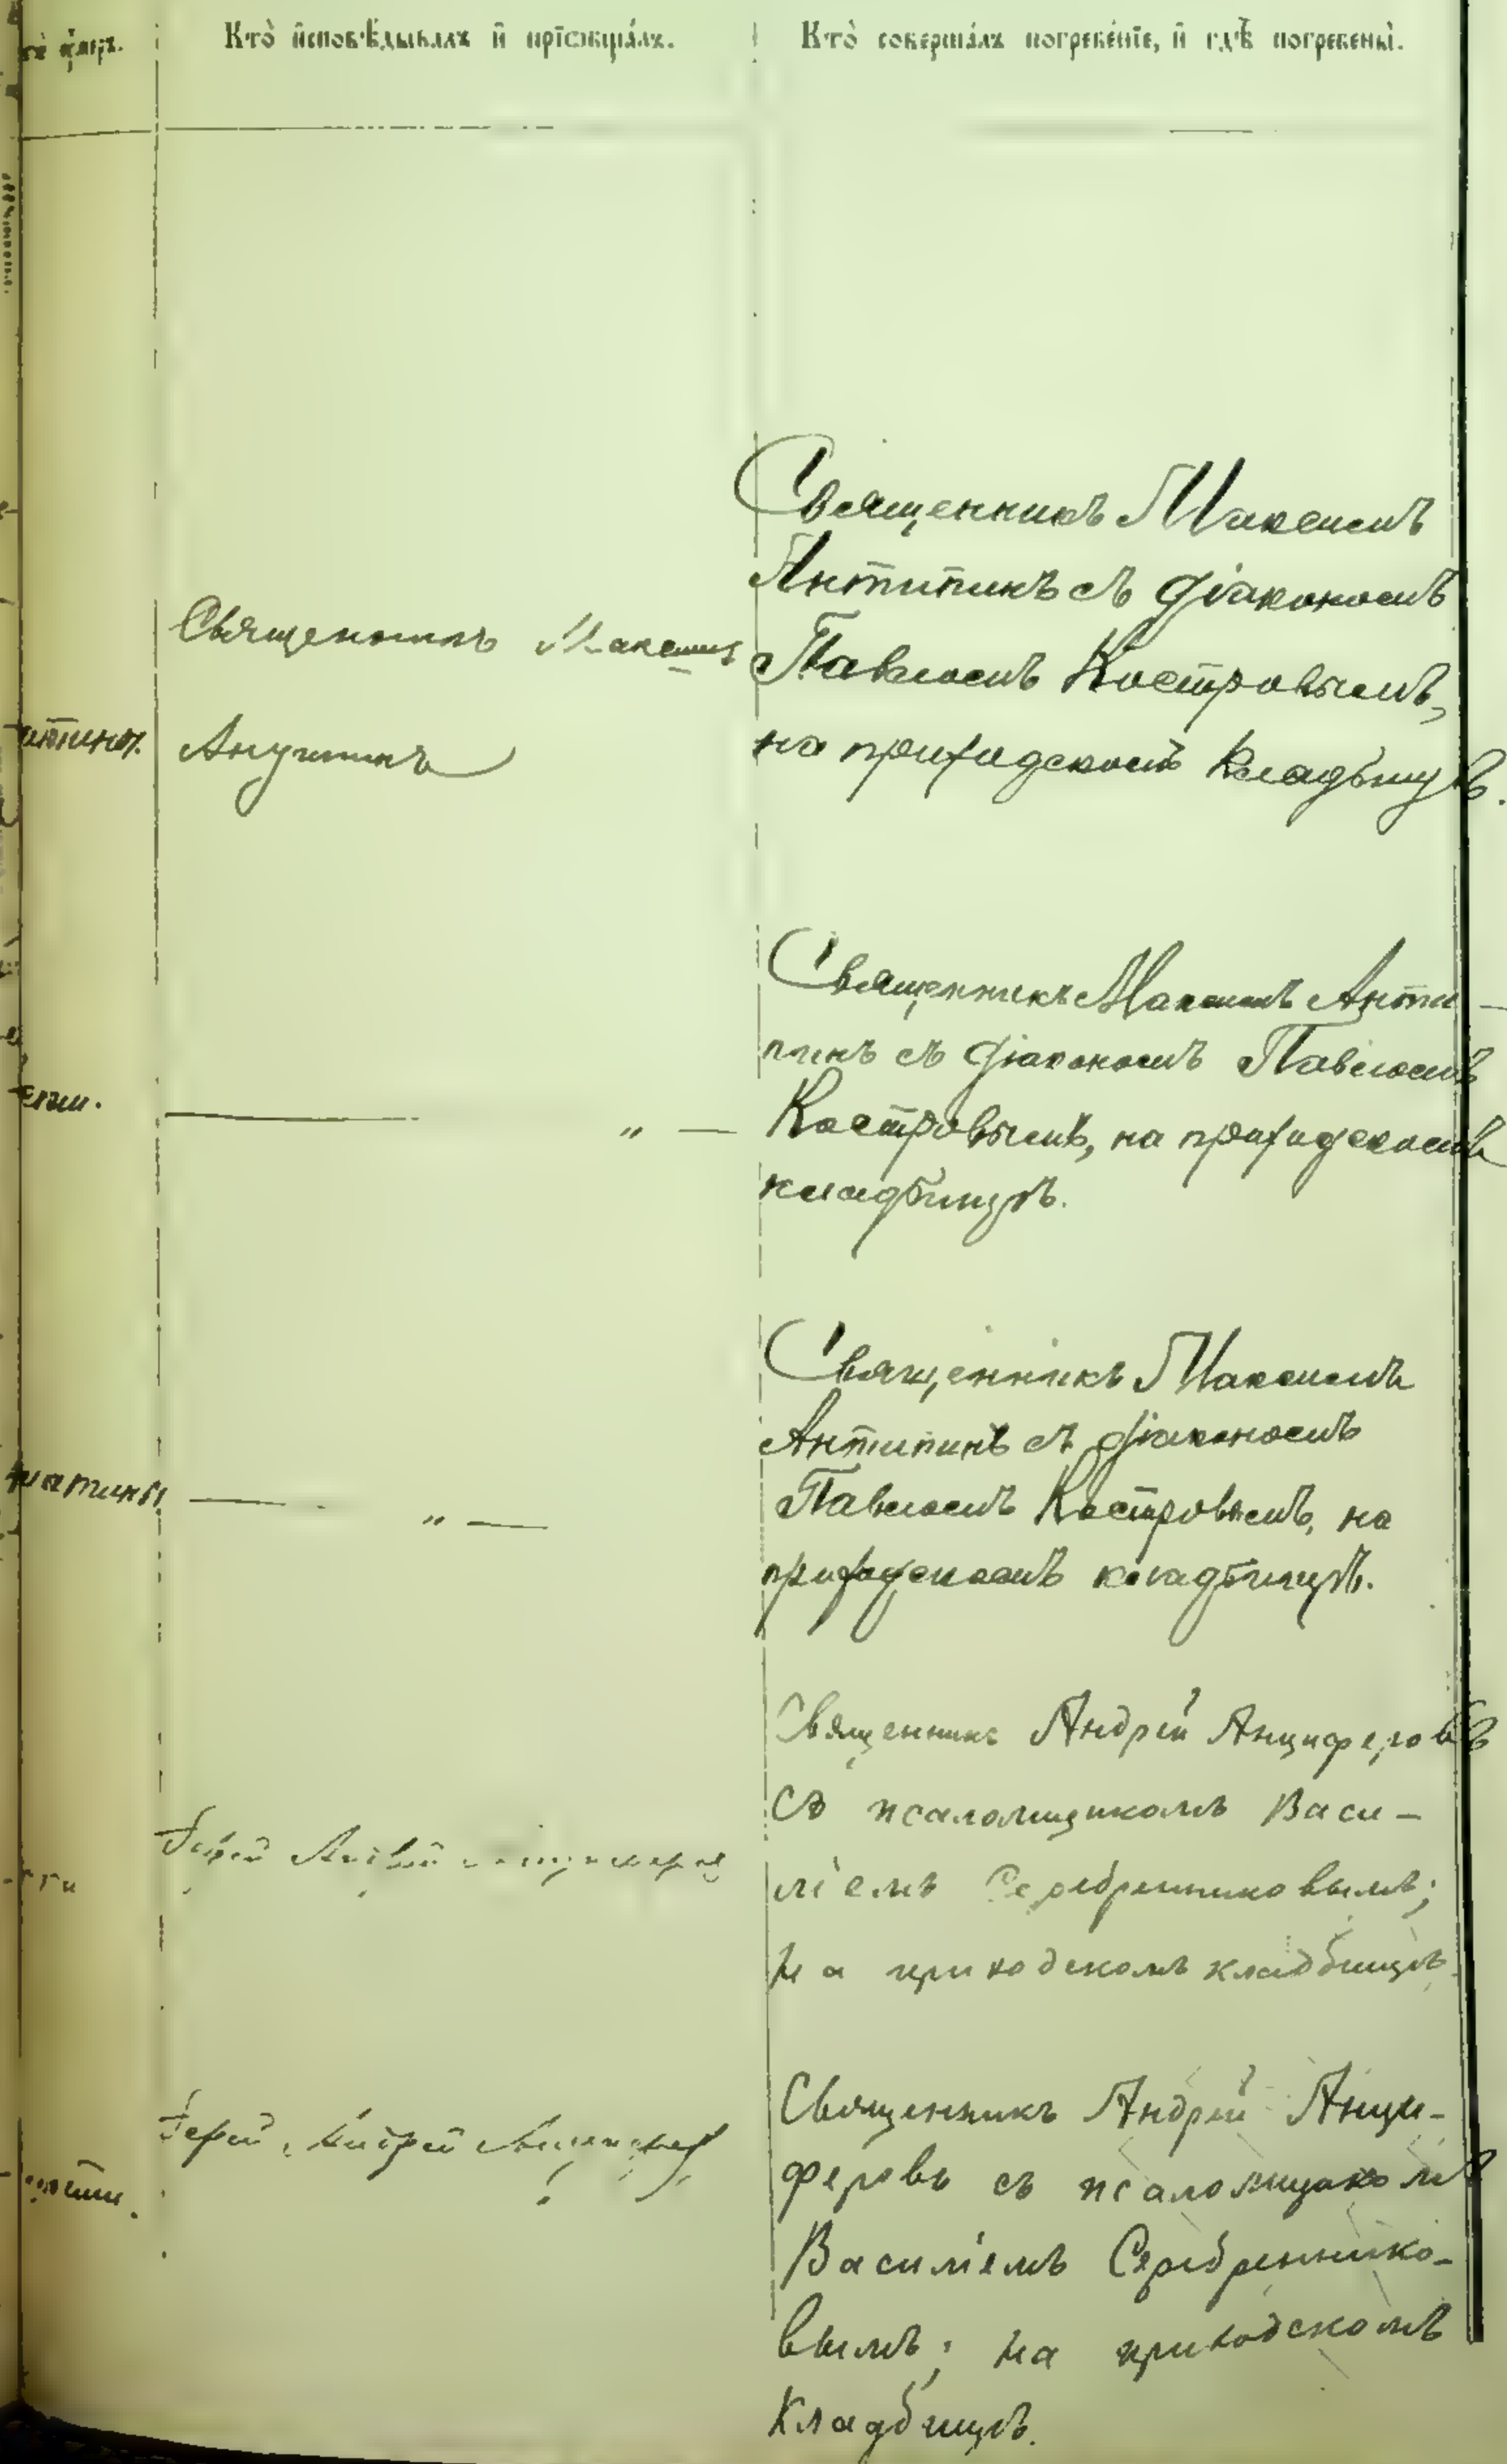 Кто̀ и҆сповѣ́дывалъ и҆ прїѡбща́лъ.
Кто̀ соверша́лъ погребе́нїе, и҆ гдѣ̀ погребены̀.
Священникъ Максимъ
Антипинъ съ діакономъ
Павломъ Костровымъ,
на приходскомъ кладбищѣ.
Священникъ Максимъ
Священникъ Максимъ Анти-
пинъ съ діакономъ Павломъ
Костровымъ, на приходскомъ
кладбищѣ.
— „ —
Священникъ Максимъ
Антипинъ съ діакономъ
Павломъ Костровымъ, на
приходскомъ кладбищѣ.
— „ —
Священникъ Андрей Анциферовъ
съ псаломщикомъ Васи-
ліемъ Серебренниковымъ;
на приходскомъ кладбищѣ.
Іерей
Священникъ Андрей Анци-
феровъ съ псаломщикомъ
Василіемъ Серебреннико-
вымъ; на приходскомъ
кладбищѣ.
Іерей Андрей